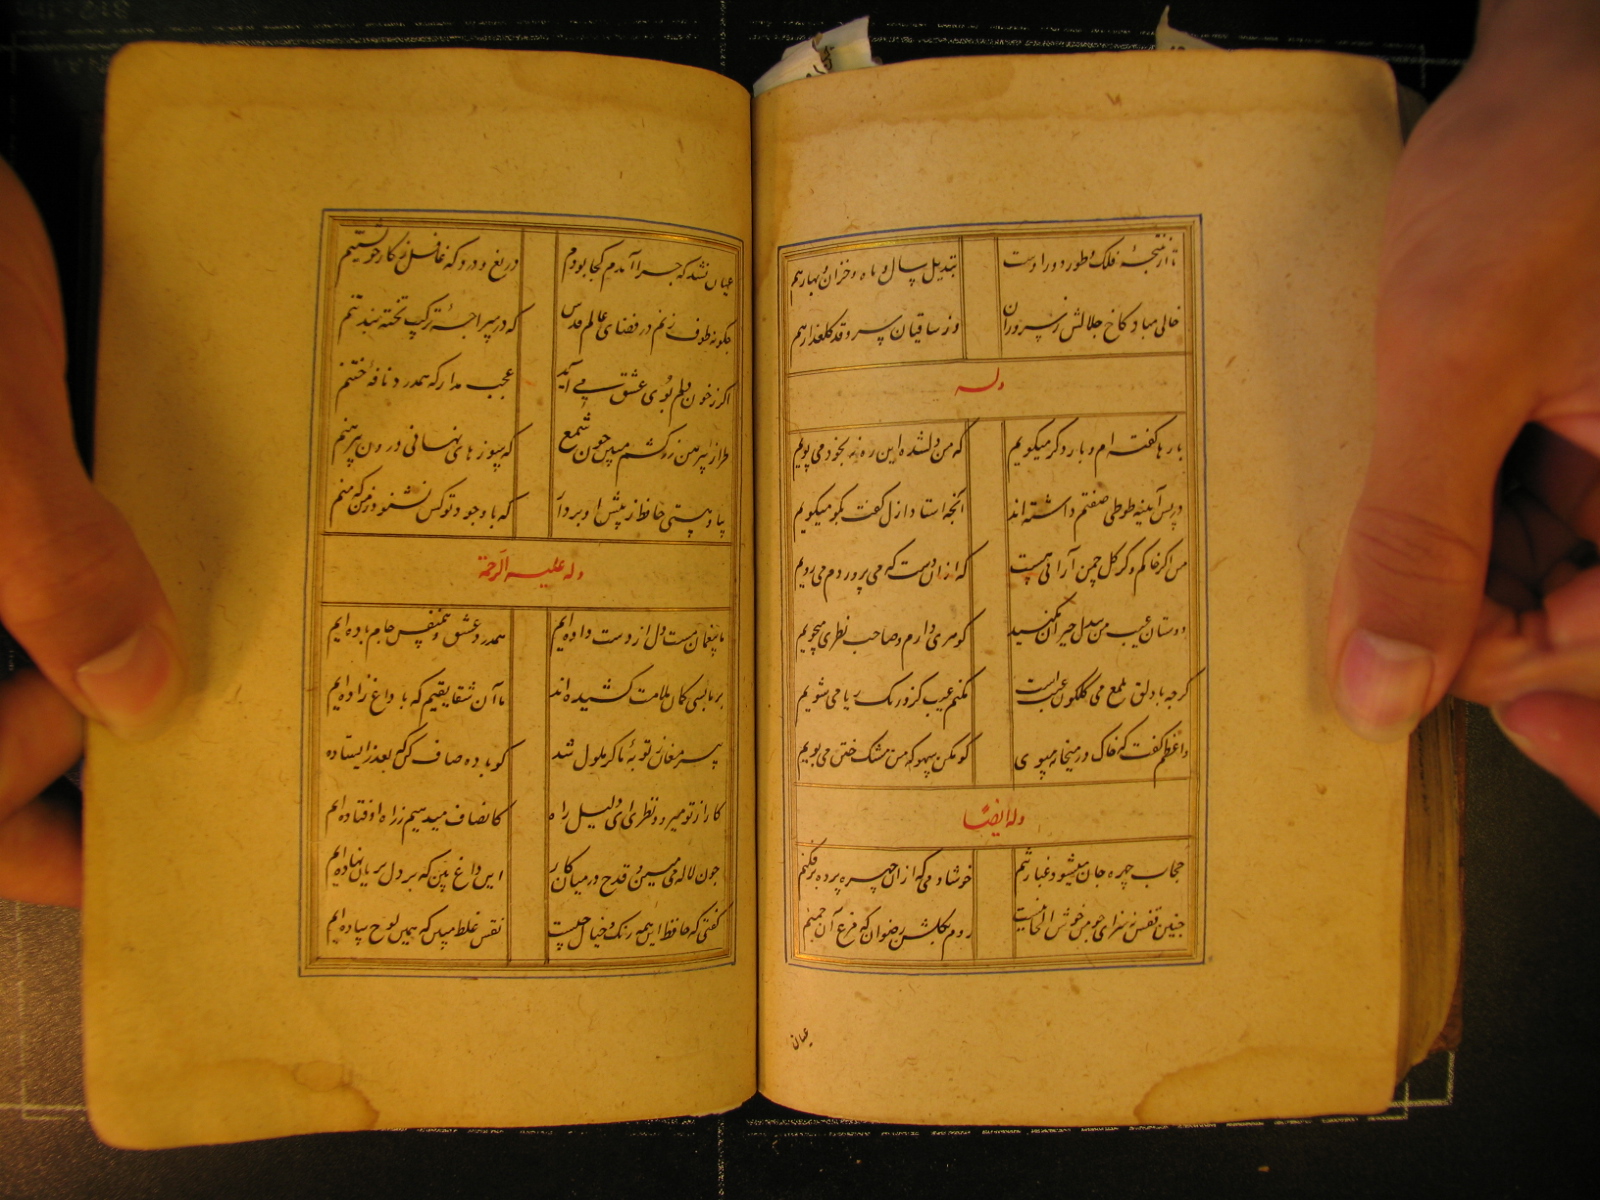 تا از نتیجهٔ فلک و طور دور اوست
تبدیل سال و ماه و خزان و بهار هم
خالی مباد کاخ جلالش ز سروران
وز ساقیان سرو قد گلعذار هم
وله
بارها گفته ام و بار دگر میگویم
که من دلشده این ره نه بخود می پویم
در پس آینه طوطی صفتم داشته اند
آنچه استاد ازل گفت بگو میگویم
من اگر خاکم و گر گل چمن آرائی هست
که از ان دست که می پروردم می رویم
دوستان عیب من بیدل حیران مکنید
گوهری دارم و صاحب نظری میجویم
گرچه با دلق ملمع می گلگون عیب است
مکنم عیب کزو رنک ریا می شویم
واعظم گفت که خاک در میخانه مبوی
گو مکن سهو که من مشک ختن می بویم
وله ایضا
حجاب چهره جان میشود غبار تنم
خوشا دمی که از ان چهره پرده برفکنم
چنین قفس نه سزای چو من خوش الحانیست
روم بگلشن رضوان که مرغ آن چمنم
عیان
عیان نشد که چرا آمدم کجا بودم
دریغ و درد که غافل ز کار خویشتنم
چگونه طوف زنم در فضای عالم قدس
که در سراچهٔ ترکیب تخته بند تنم
اگر ز خون دلم بوی عشق می آید
عجب مدار که همدرد نافهٔ ختنم
طراز پیرهن زرکشم مبین چون شمع
که سوزهای نهانی درون پیرهنم
بیا و هستی حافظ ز پیش او بردار
که با وجود تو کس نشنود ز من که منم
وله علیه الرحمة
ما بیغمان مست دل از دست داده ایم
همدرد عشق و همنفس جام باده ایم
بر ما بسی کمان ملامت کشیده اند
ما آن شقایقیم که با داغ زاده ایم
پیر مغان ز توبهٔ ما گر ملول شد
گو باده صاف کن که بعذر ایستاده
کار از تو میرود نظری ای دلیل راه
کانصاف میدهیم ز راه اوفتاده ایم
چون لاله می مبین و قدح در میان کار
این داغ بین که بر دل بریان نهاده ایم
گفتی که حافظ این همه رنک و خیال چیست
نقش غلط مبین که همین لوح ساده ایم